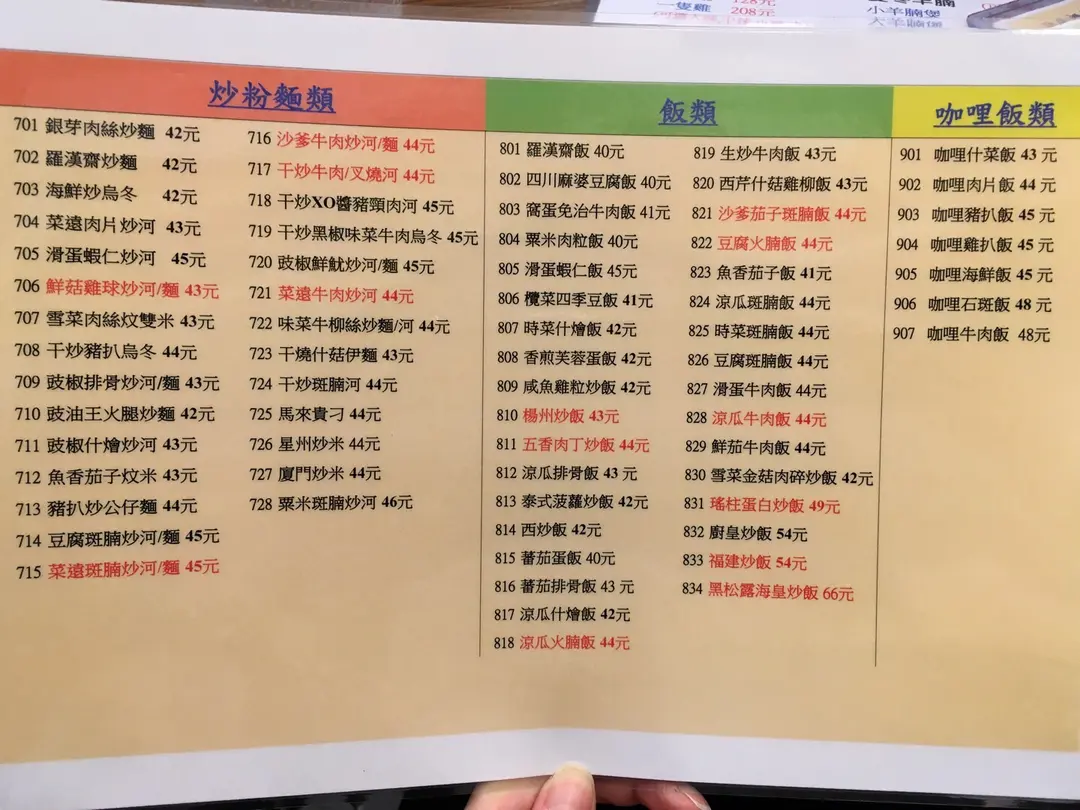 一隻雞 208元
小羊腩煲
大羊腩煲
炒粉麵類
701 銀芽肉絲炒麵 42元
702 羅漢齋炒麵 42元
703 海鮮炒烏冬 42元
704 菜遠肉片炒河 43元
705 滑蛋蝦仁炒河 45元
706 鮮菇雞球炒河/麵 43元
707 雪菜肉絲炆雙米 43元
708 干炒豬扒烏冬 44元
709 豉椒排骨炒河/麵 43元
710 豉油王火腿炒麵 42元
711 豉椒什燴炒河 43元
712 魚香茄子炆米 43元
713 豬扒炒公仔麵 44元
714 豆腐斑腩炒河/麵 45元
715 菜遠斑腩炒河/麵 45元
716 沙爹牛肉炒河/麵 44元
717 干炒牛肉/叉燒河 44元
718 干炒XO醬豬頸肉河 45元
719 干炒黑椒味菜牛肉烏冬 45元
720 豉椒鮮魷炒河/麵 45元
721 菜遠牛肉炒河 44元
722 味菜牛柳絲炒麵/河 44元
723 干燒什菇伊麵 43元
724 干炒斑腩河 44元
725 馬來貴刁 44元
726 星州炒米 44元
727 廈門炒米 44元
728 粟米斑腩炒河 46元
飯類
801 羅漢齋飯 40元
802 四川麻婆豆腐飯 40元
803 窩蛋免治牛肉飯 41元
804 粟米肉粒飯 40元
805 滑蛋蝦仁飯 45元
806 欖菜四季豆飯 41元
807 時菜什燴飯 42元
808 香煎芙蓉蛋飯 42元
809 咸魚雞粒炒飯 42元
810 楊州炒飯 43元
811 五香肉丁炒飯 44元
812 涼瓜排骨飯 43 元
813 泰式菠蘿炒飯 42元
814 西炒飯 42元
815 蕃茄蛋飯 40元
816 蕃茄排骨飯 43 元
817 涼瓜什燴飯 42元
818 涼瓜火腩飯 44元
819 生炒牛肉飯 43元
820 西芹什菇雞柳飯 43元
821 沙爹茄子斑腩飯 44元
822 豆腐火腩飯 44元
823 魚香茄子飯 41元
824 涼瓜斑腩飯 44元
825 時菜斑腩飯 44元
826 豆腐斑腩飯 44元
827 滑蛋牛肉飯 44元
828 涼瓜牛肉飯 44元
829 鮮茄牛肉飯 44元
830 雪菜金菇肉碎炒飯 42元
831 瑤柱蛋白炒飯 49元
832 廚皇炒飯 54元
833 福建炒飯 54元
834 黑松露海皇炒飯 66元
咖哩飯類
901 咖哩什菜飯 43 元
902 咖哩肉片飯 44 元
903 咖哩豬扒飯 45 元
904 咖哩雞扒飯 45 元
905 咖哩海鮮飯 45 元
906 咖哩石斑飯 48 元
907 咖哩牛肉飯 48元